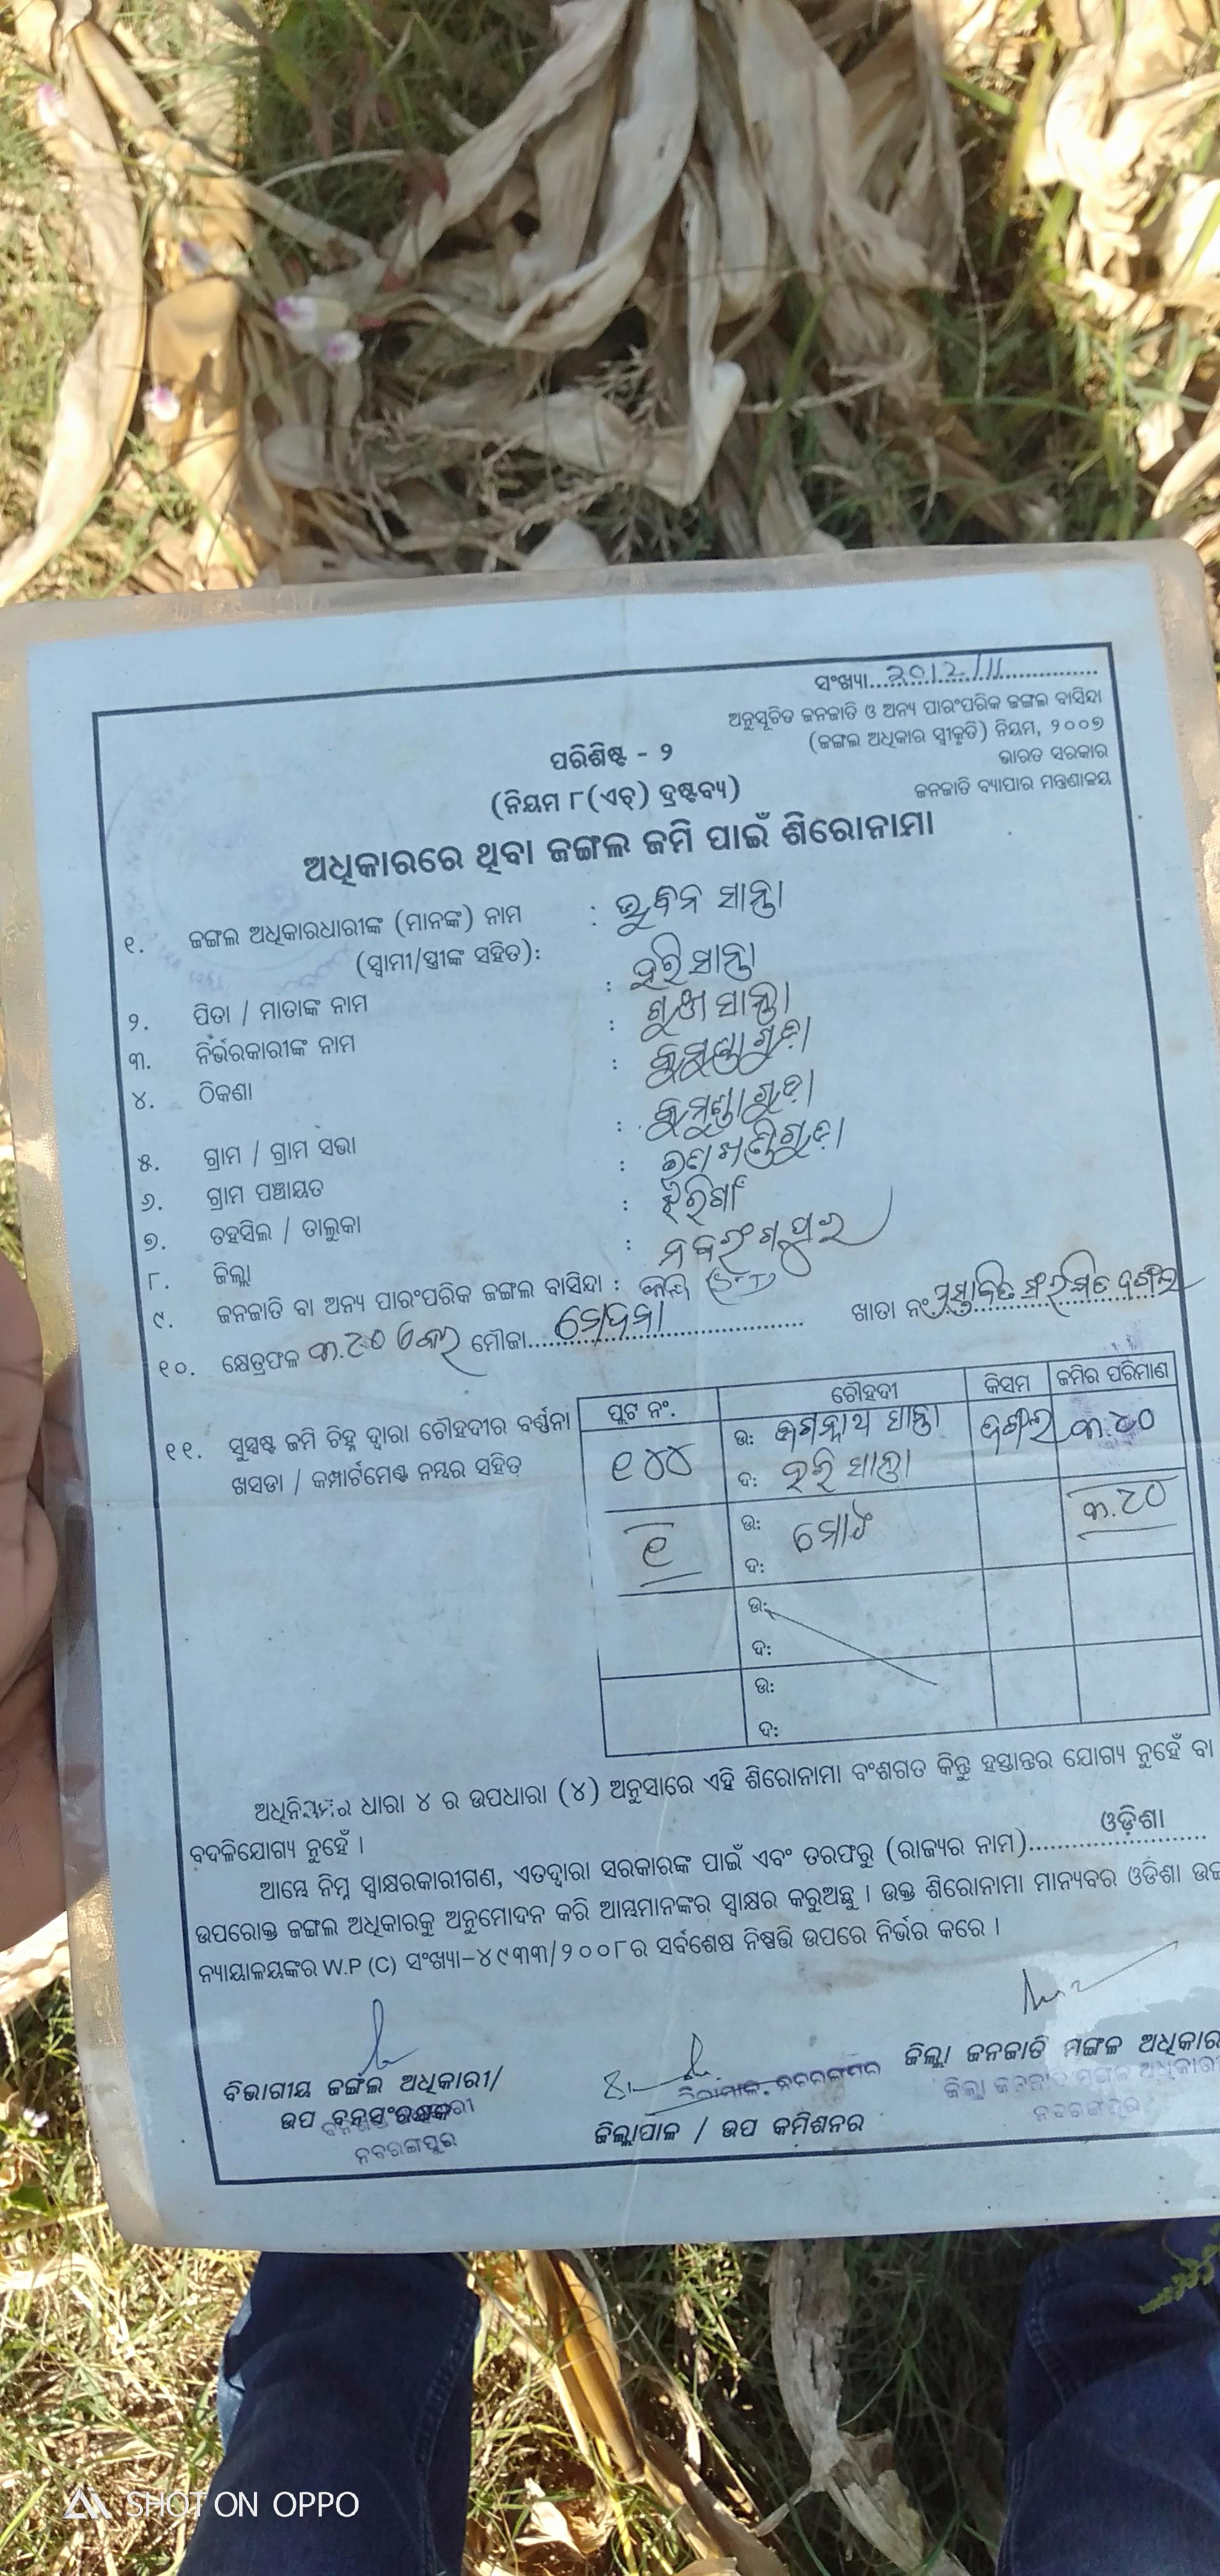 ସଂଖ୍ୟା...2012/11
ଅନୁସୂଚିତ ଜନଜାତି ଓ ଅନ୍ୟ ପାରଂପରିକ ଜଙ୍ଗଲ ବାସିନ୍ଦା
(ଜଙ୍ଗଲ ଅଧିକାର ସ୍ୱୀକୃତି) ନିୟମ, ୨୦୦୭
ଭାରତ ସରକାର
ଜନଜାତି ବ୍ୟାପାର ମନ୍ତ୍ରଣାଳୟ
ପରିଶିଷ୍ଟ - ୨
(ନିୟମ ୮(ଏଚ୍) ଦ୍ରଷ୍ଟବ୍ୟ)
ଅଧିକାରରେ ଥିବା ଜଙ୍ଗଲ ଜମି ପାଇଁ ଶିରୋନାମା
୧. ଜଙ୍ଗଲ ଅଧିକାରଧାରୀଙ୍କ (ମାନଙ୍କ) ନାମ : ସାନ୍ତା
(ସ୍ୱାମୀ/ସ୍ତ୍ରୀଙ୍କ ସହିତ):
୨. ପିତା / ମାତାଙ୍କ ନାମ : ହରି ସାନ୍ତା
୩. ନିର୍ଭରକାରୀଙ୍କ ନାମ : ସାନ୍ତା
୪. ଠିକଣା :
୫. ଗ୍ରାମ / ଗ୍ରାମ ସଭା :
୬. ଗ୍ରାମ ପଞ୍ଚାୟତ :
୭. ତହସିଲ / ତାଲୁକା : ଝରିଗାଁ
୮. ଜିଲ୍ଲା : ନବରଂଗପୁର
୯. ଜନଜାତି ବା ଅନ୍ୟ ପାରଂପରିକ ଜଙ୍ଗଲ ବାସିନ୍ଦା : (ST)
୧୦. କ୍ଷେତ୍ରଫଳ ୩.୮୦ ମୌଜା... ମେଦନା ଖାତା ନଂ.
୧୧. ସୁସ୍ପଷ୍ଟ ଜମି ଚିହ୍ନ ଦ୍ୱାରା ଚୌହଦୀର ବର୍ଣ୍ଣନା
ଖସଡା / କମ୍ପାର୍ଟମେଣ୍ଟ ନମ୍ବର ସହିତ
ପ୍ଲଟ ନଂ. ଚୌହଦୀ କିସମ ଜମିର ପରିମାଣ
୧୪୪ ଉ: ଜଗନ୍ନାଥ ସାନ୍ତା ଜଙ୍ଗଲ ୩.୮୦
ଦ: ହରି ସାନ୍ତା
୧ ଉ: ମୋଟ ୩.୮୦
ଦ:
ଉ:
ଦ:
ଉ:
ଦ:
ଅଧିନିୟମର ଧାରା ୪ ର ଉପଧାରା (୪) ଅନୁସାରେ ଏହି ଶିରୋନାମା ବଂଶଗତ କିନ୍ତୁ ହସ୍ତାନ୍ତର ଯୋଗ୍ୟ ନୁହେଁ ବା
ବଦଳିଯୋଗ୍ୟ ନୁହେଁ ।
ଆମ୍ଭେ ନିମ୍ନ ସ୍ୱାକ୍ଷରକାରୀଗଣ, ଏତଦ୍ୱାରା ସରକାରଙ୍କ ପାଇଁ ଏବଂ ତରଫରୁ (ରାଜ୍ୟର ନାମ)... ଓଡ଼ିଶା
ଉପରୋକ୍ତ ଜଙ୍ଗଲ ଅଧିକାରକୁ ଅନୁମୋଦନ କରି ଆମ୍ଭମାନଙ୍କର ସ୍ୱାକ୍ଷର କରୁଅଛୁ । ଉକ୍ତ ଶିରୋନାମା ମାନ୍ୟବର ଓଡିଶା
ନ୍ୟାୟାଳୟଙ୍କର W.P (C) ସଂଖ୍ୟା-୪୯୩୩/୨୦୦୮ର ସର୍ବଶେଷ ନିଷ୍ପତ୍ତି ଉପରେ ନିର୍ଭର କରେ ।
ବିଭାଗୀୟ ଜଙ୍ଗଲ ଅଧିକାରୀ/
ଉପ ବନସଂରକ୍ଷକ
ନବରଙ୍ଗପୁର
ଜିଲ୍ଲାପାଳ, ନବରଙ୍ଗପୁର
ଜିଲ୍ଲାପାଳ / ଉପ କମିଶନର
ଜିଲ୍ଲା ଜନଜାତି ମଙ୍ଗଳ ଅଧିକାରୀ
ଜିଲ୍ଲା ଜନଜାତି ମଙ୍ଗଳ ଅଧିକାରୀ
ନବରଙ୍ଗପୁର
SHOT ON OPPO